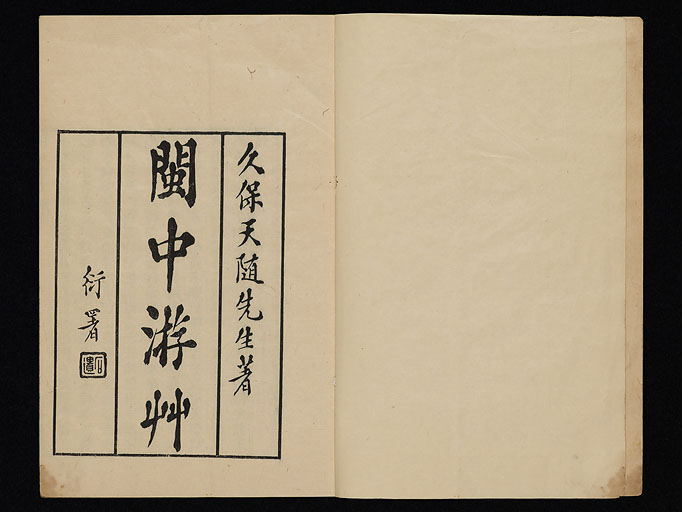 久保天随先生著
閩中游艸
衍署
石遺